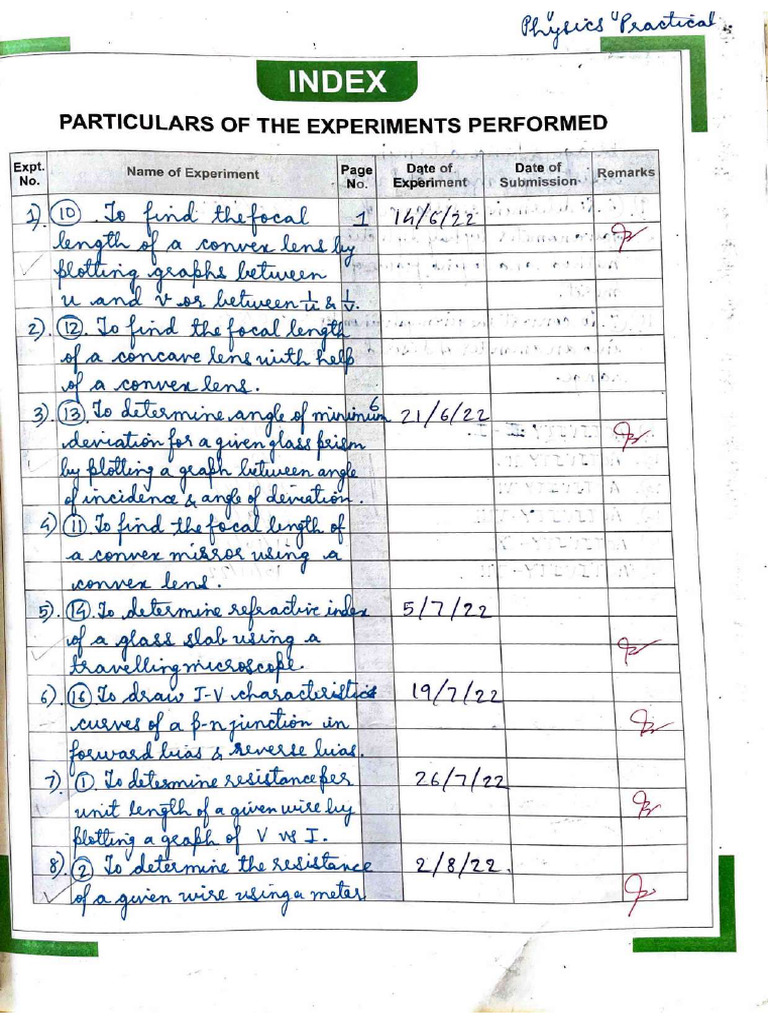 "Physics" Practical
INDEX
PARTICULARS OF THE EXPERIMENTS PERFORMED
Expt. No. Name of Experiment Page No. Date of Experiment Date of Submission Remarks
1) (10). To find the focal 1 14/6/22
length of a convex lens by
plotting graphs between
u and v or between 1/u & 1/v.
2). (12). To find the focal length
of a concave lens with help
of a convex lens.
3). (13). To determine angle of minimum 6 21/6/22
deviation for a given glass prism
by plotting a graph between angle
of incidence & angle of deviation.
4) (11) To find the focal length of
a convex mirror using a
convex lens.
5). (14) To determine refractive index 5/7/22
of a glass slab using a
travelling microscope.
6). (16) To draw I-V characteristics 19/7/22
curves of a p-n junction in
forward bias & reverse bias.
7) (1) To determine resistance per 26/7/22
unit length of a given wire by
plotting a graph of V vs I.
8). (2) To determine the resistance 2/8/22.
of a given wire using a meter